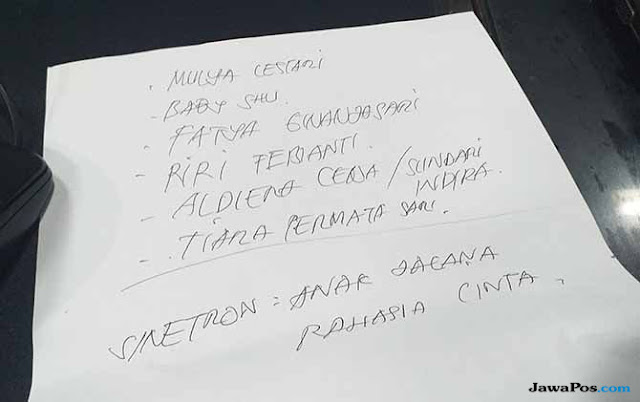 - MULYA LESTARI
- BABY SHU.
- FATYA GINANJASARI
- RIRI FEBIANTI.
- ALDIENA CENA / SUNDARI INDIRA.
- TIARA PERMATA SARI.
SINETRON = ANAK JALANA
RAHASIA CINTA.
JawaPos.com